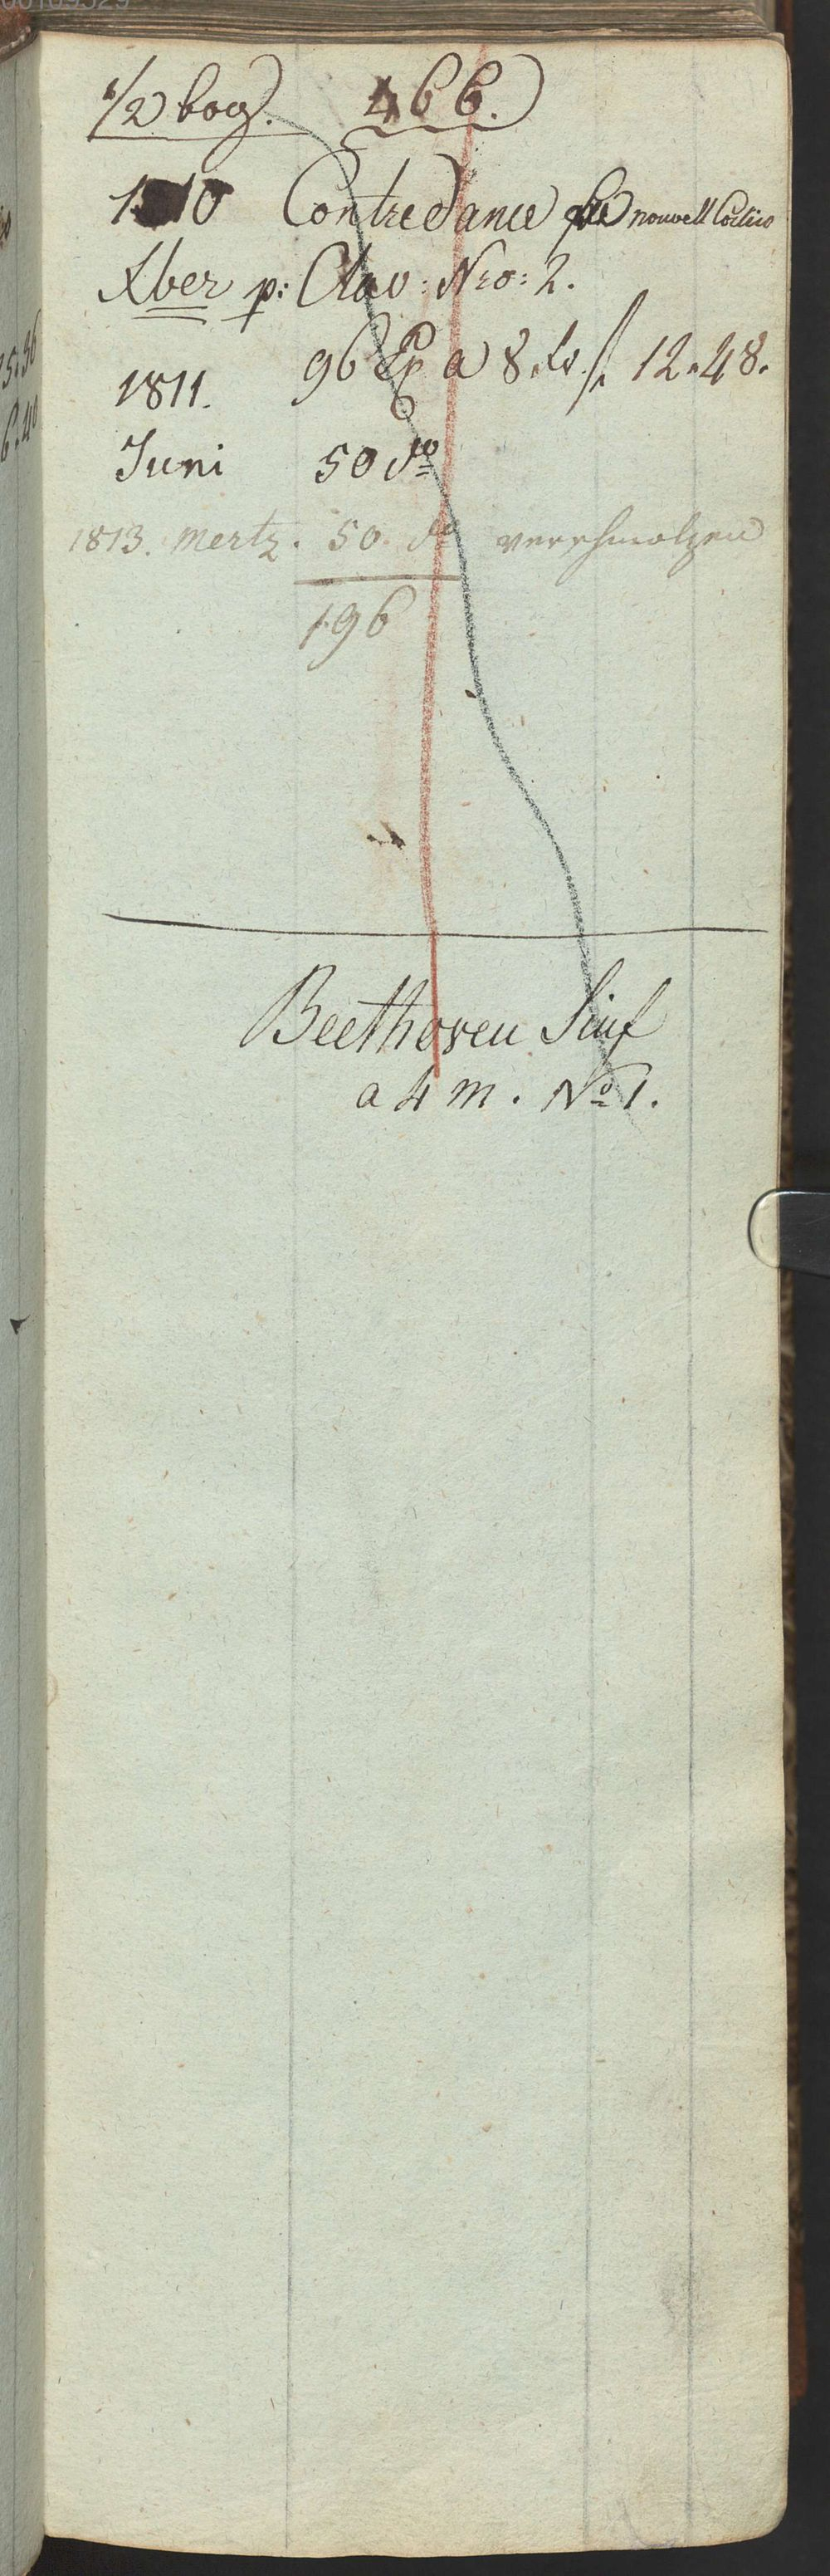 1/2 bog. 466.
1810 Contredance nouvell
Xber p: Clav: Nro: 2.
96 Ex a 8 xr. f. 12.48.
1811.
Juni 50 do
1813. Mertz. 50 do verschmolzen
196
Beethoven Sinf
a 4 m. No 1.